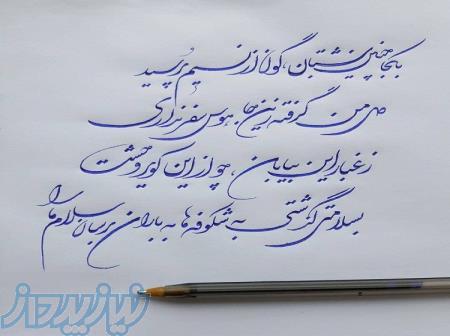 بکجا چنین شتابان، گون از نسیم پرسید
دل من گرفته زین جا، هوس سفر نداری
ز غبار این بیابان، چو از این کویر وحشت
بسلامتی گذشتی به شکوفه‌ها به باران برسان سلام ما را
نیازپرداز